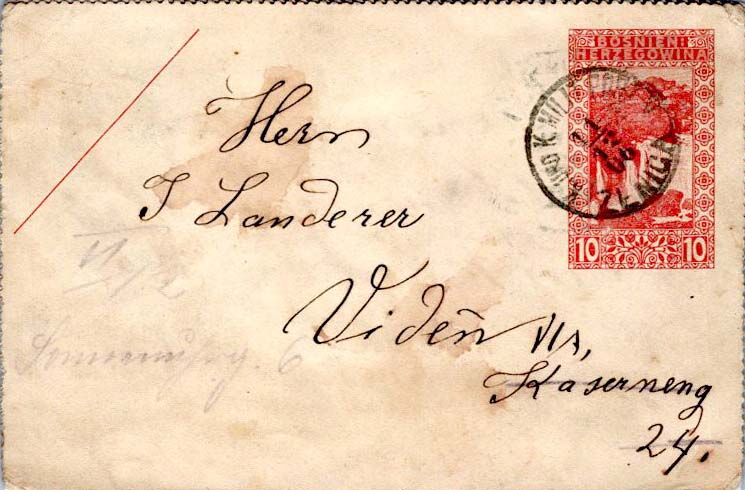 BOSNIEN-
HERZEGOWINA
ZENICA
10 10
Herrn
J Landerer
Videň VI/2,
Kaserneng
24.
VI/2